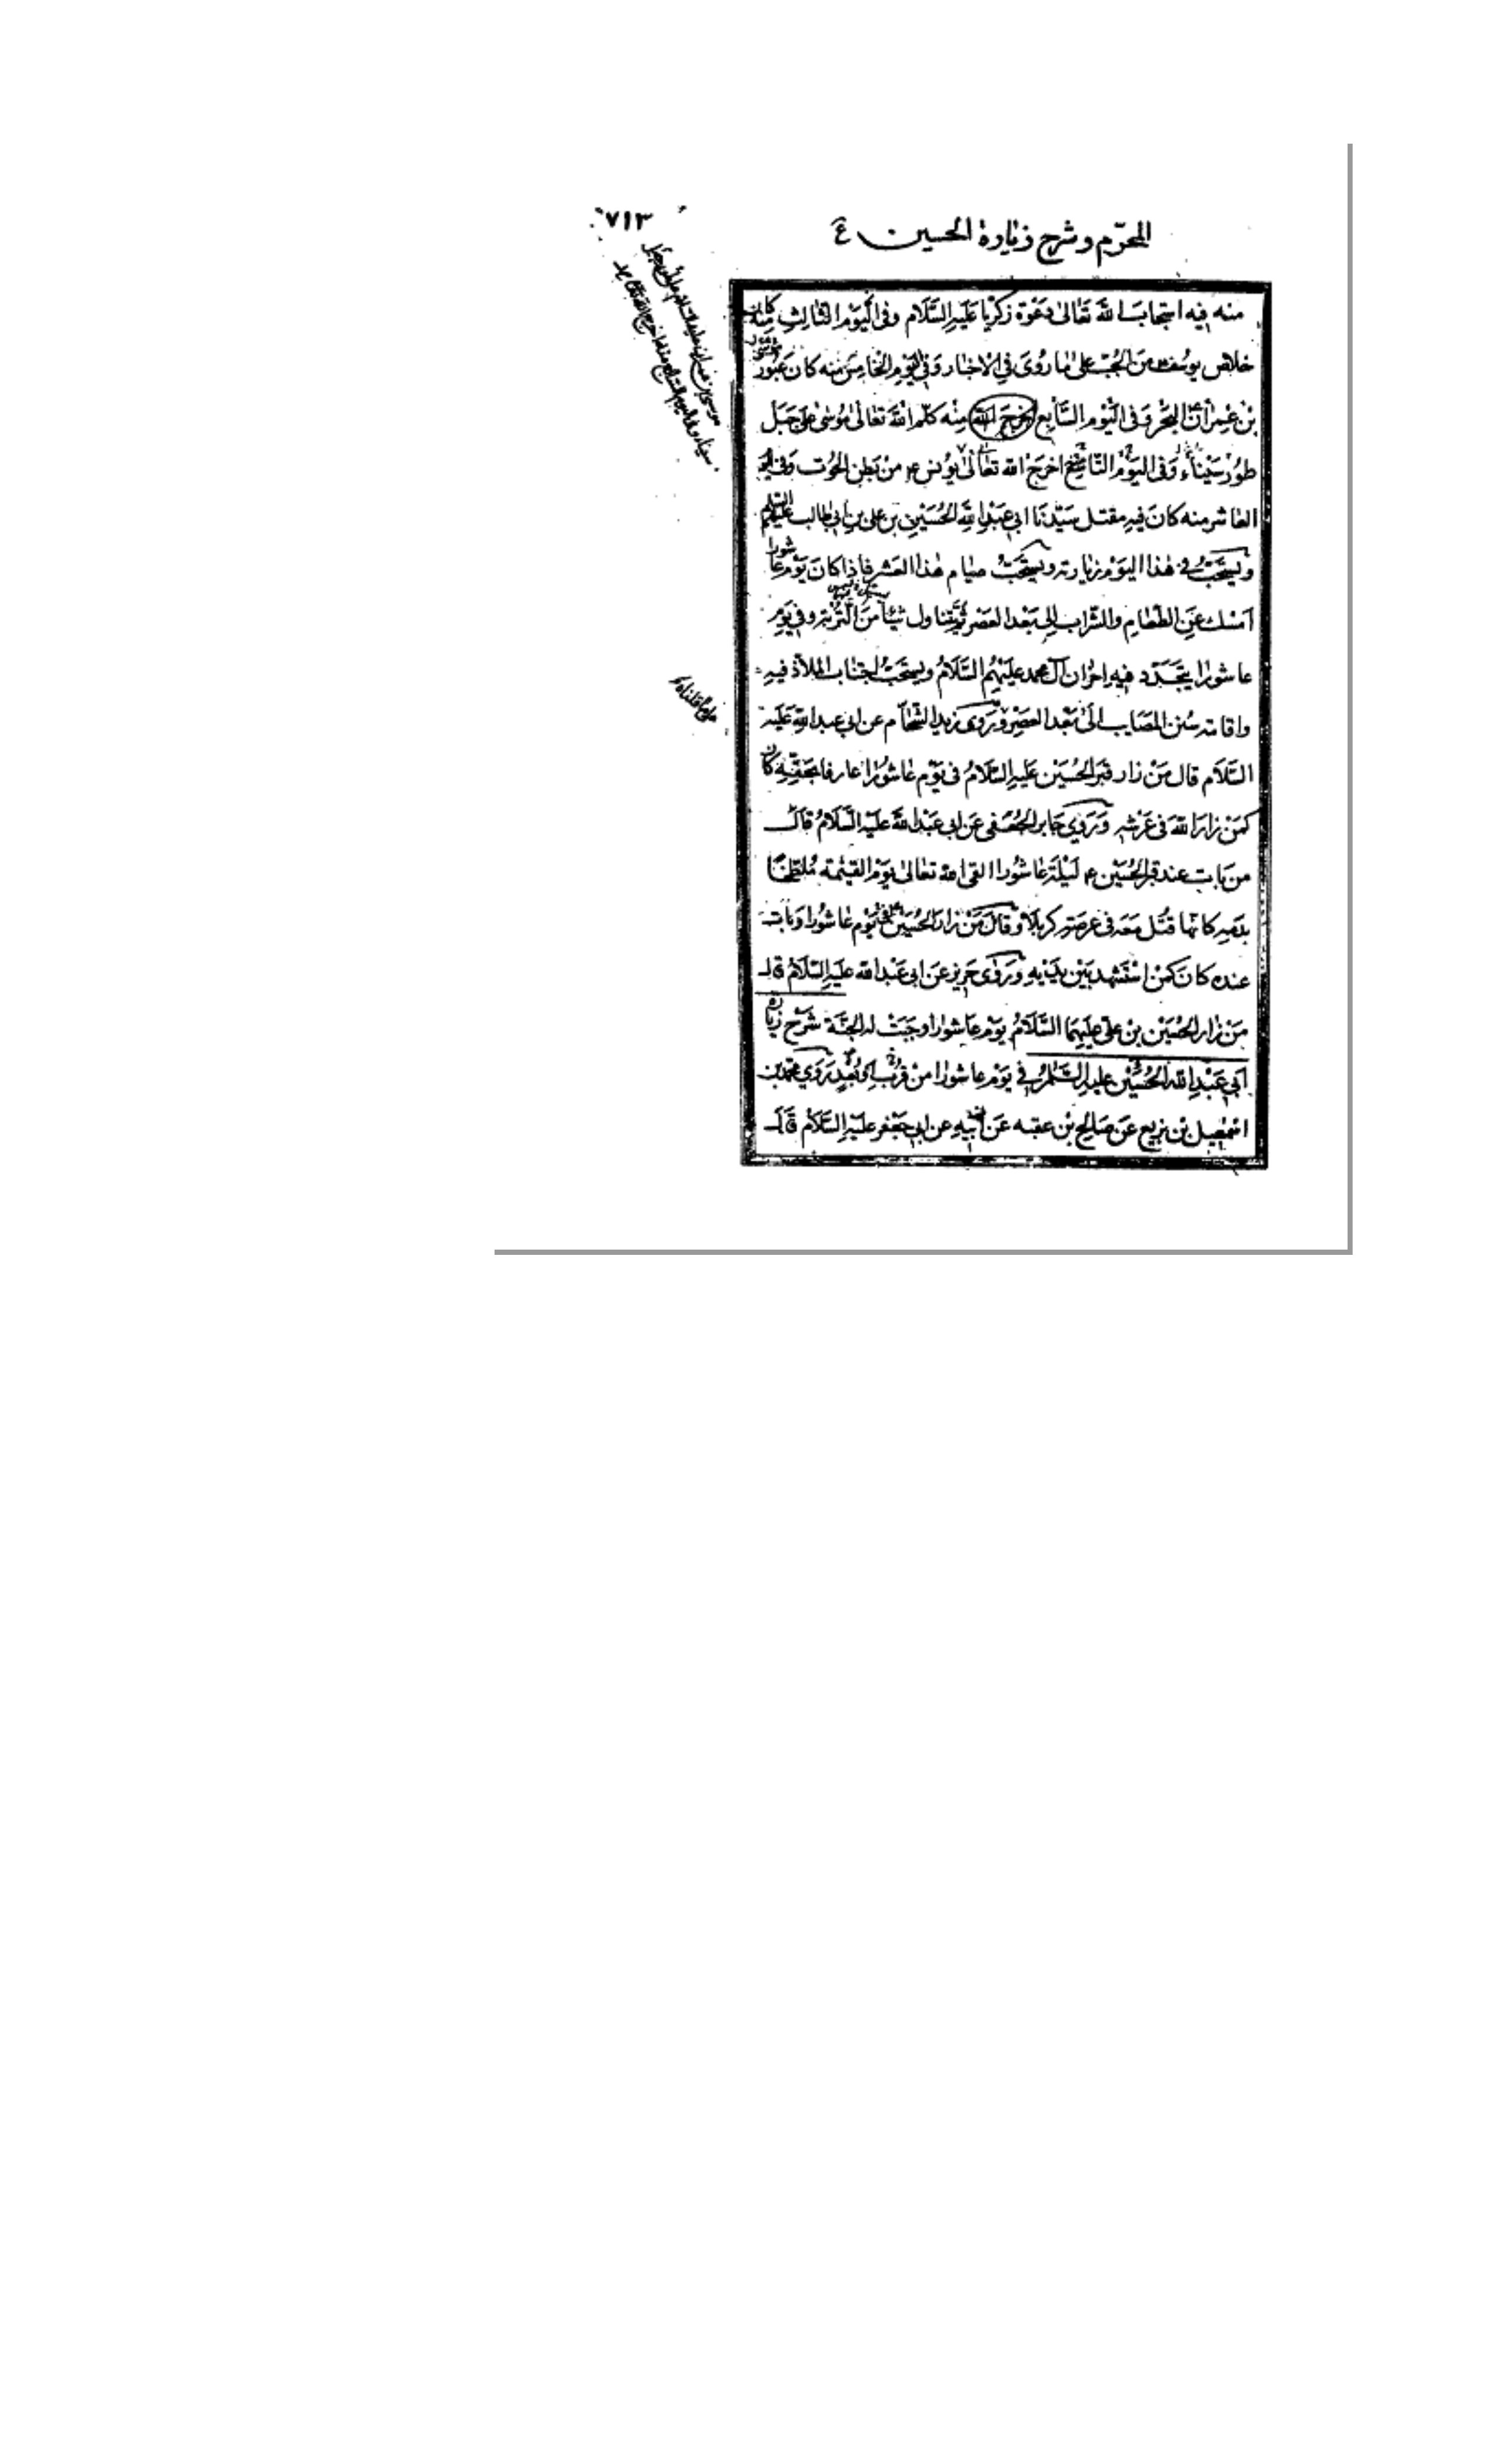 ٧١٣
المحرّم و شرح زيارة الحسين ع
منه فيه استجاب الله تَعَالىٰ دَعْوَة زكَريّا عَلَيهِ السَّلَام وفى اليَوْم الثالِثِ مِنه كان
خلاص يوُسُف من الجُبّ على ما رُوِىَ في الاخبار وَفى اليَوم الخامِسِ منه كان عبُور موسى
بن عِمران البَحْر وَ فى اليَوْمِ السَّابِع مِنْه كلّم اللهُ تعالىٰ مُوسىٰ على جَبَل
طوُر سَيْنآءَ وَفى اليَوْم التّاسِع اخرَج الله تَعَالىٰ يوُنس ع من بَطن الحُوت وَفى اليَو
العاشر منه كانَ فيهِ مقتل سَيّدنَا ابى عَبدِ اللهِ الحُسَيْنِ بن على بنِ ابى طالب عليهم السلم
ويَستَحَبُّ فى هٰذا اليوم زيارته ويَستَحَبُّ صيام هٰذا العَشر فاِذا كانَ يَوْم عاشورا
اَمْسك عَنِ الطعَامِ والشراب اِلى بَعْد العَصْر ثم يتناول شيئاً من التُّرْبَةِ وفى يَومِ
عاشورا يتجَدّد فيهِ احزان آل محمد عليهُم السَّلَامُ ويستحَبُّ اجتناب الملاذّ فيهِ
واقامة سُنن المصَايب الىٰ بَعْد العصرِ وَرَوى زيد الشحّام عن ابى عبد الله عَليه
السَّلَام قال مَنْ زار قبر الحُسَيْن عَليهِ السَّلامُ فى يَوْمِ عاشُورا عارفا بحَقّهِ كان
كمَنْ زارَ اللهَ فى عَرْشِهِ وَرَوى جَابر الجُعْفى عَن ابى عَبْد اللهِ عليه السَّلَامُ قال
من بَات عند قبر الحُسَيْن ع ليْلَة عاشُورا لقى الله تعالىٰ يوْم القيٰمة مُلطخًا
بدَمِهِ كانّما قُتل معَه فى عرصَةِ كربلا وَقال مَنْ زار الحُسَين ع فى يَوْم عاشورا وَبَات
عنده كانَ كمنْ استَشهد بَيْن يدَيْهِ وَرَوى حَرِيز عن ابى عَبْد الله عليهِ السَّلَامُ قال
مَنْ زار الحُسَيْن بن علىّ عليهِمَا السَّلَامُ يَوْمَ عاشورا وَجَبَتْ له الجنَّة شَرْح زيارة
اَبى عَبْدِ الله الحُسَيْن عليهِ السَّلَامُ فى يَوْمِ عاشورا من قُرْبٍ اَو بُعْدٍ رَوَى محمّد بن
اسمٰعيل بن بَزيع عَنْ صَالِح بْن عقبه عَن اَبيهِ عن ابى جَعفر عليهِ السَّلَامُ قال